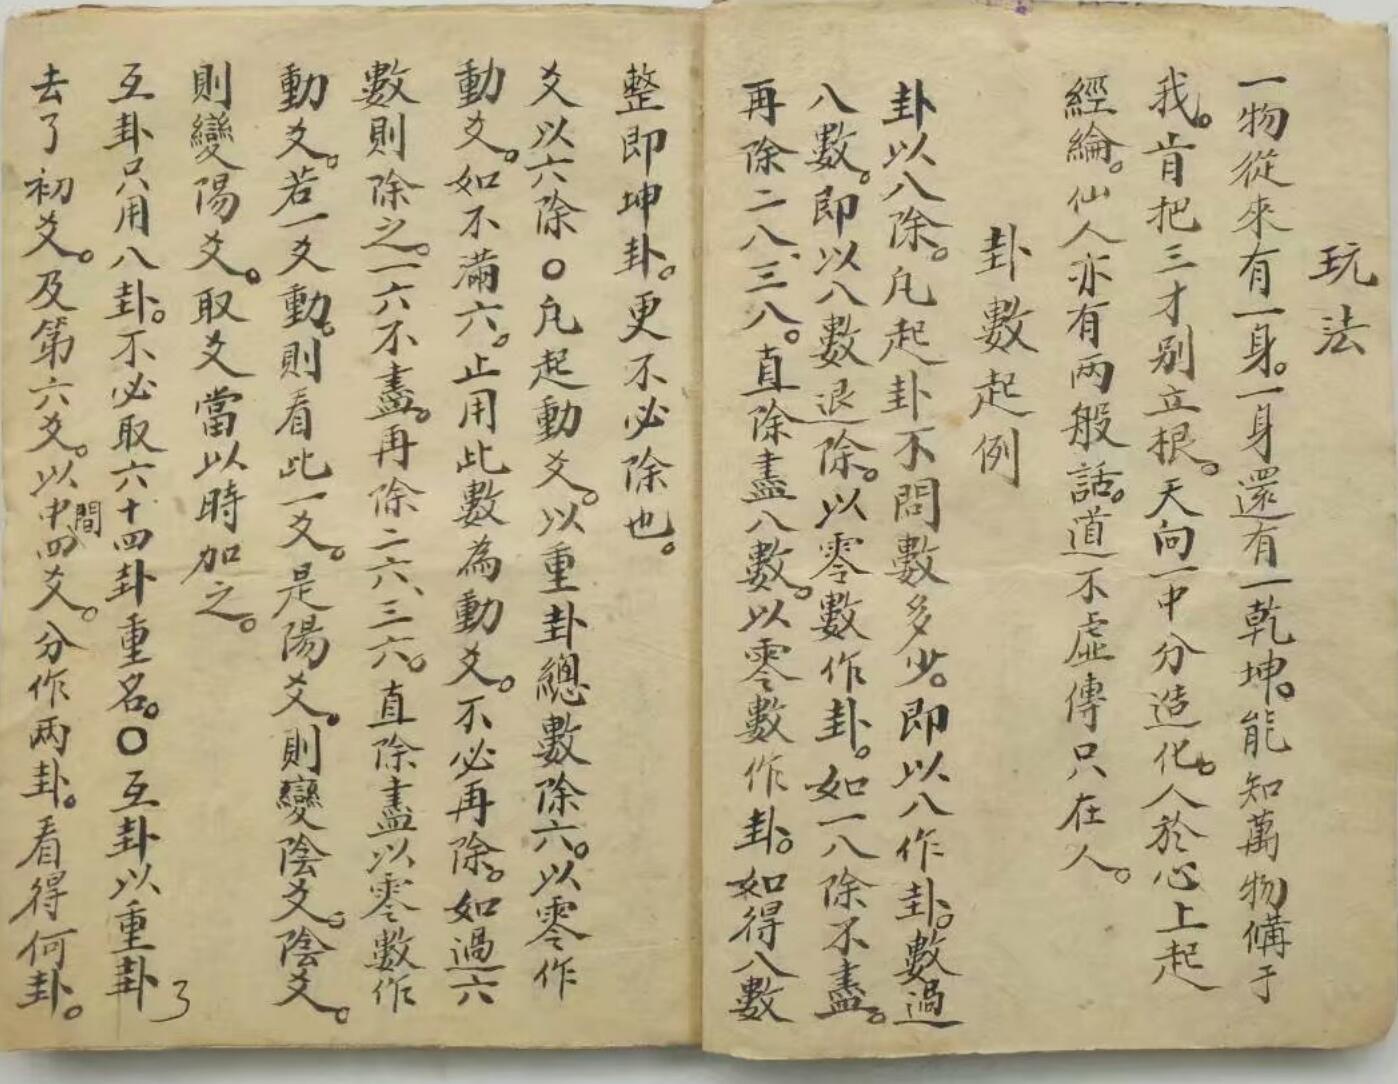 玩法
一物從來有一身。一身還有一乾坤。能知萬物備于
我。肯把三才别立根。天向一中分造化。人於心上起
經綸。仙人亦有兩般話。道不虛傳只在人。
卦數起例
卦以八除。凡起卦不問數多少。即以八作卦。數過
八數。即以八數退除。以零數作卦。如一八除不盡。
再除二八、三八。直除盡八數。以零數作卦。如得八數
整即坤卦。更不必除也。
爻以六除〇凡起動爻。以重卦總數除六。以零作
動爻。如不滿六。止用此數為動爻。不必再除。如過六
數則除之。一六不盡。再除二六、三六。直除盡以零數作
動爻。若一爻動。則看此一爻。是陽爻。則變陰爻。陰爻。
則變陽爻。取爻當以時加之。
互卦只用八卦。不必取六十四卦重名。〇互卦以重卦
3
去了初爻。及第六爻。以中間四爻。分作兩卦。看得何卦。